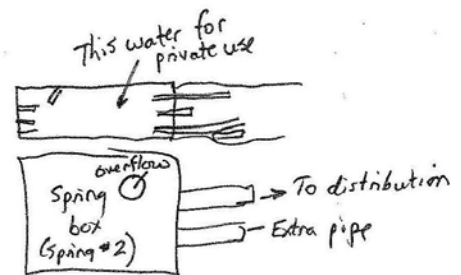 This water for
private use
overflow
Spring
box
(Spring #2)
To distribution
Extra pipe